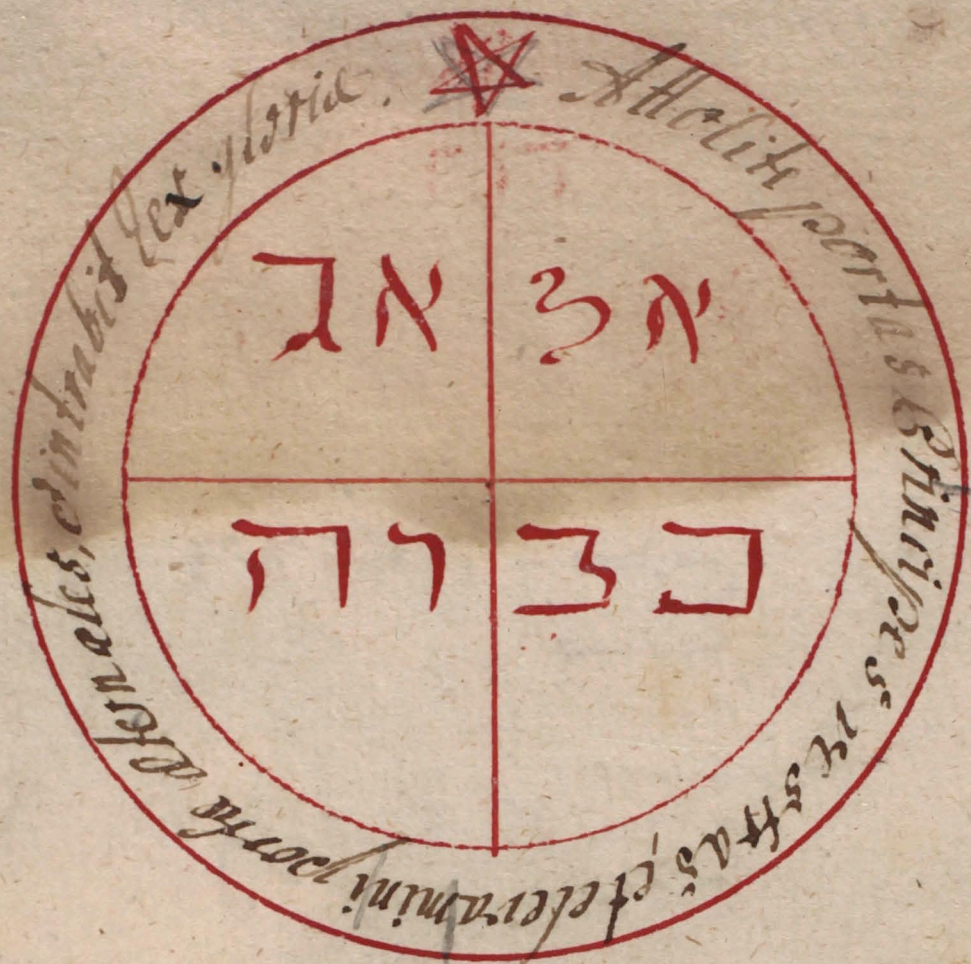 Attolite portas Principes vestras, et elevamini portæ æternales, et intrabit Rex gloriæ.
אז אג
כב רה